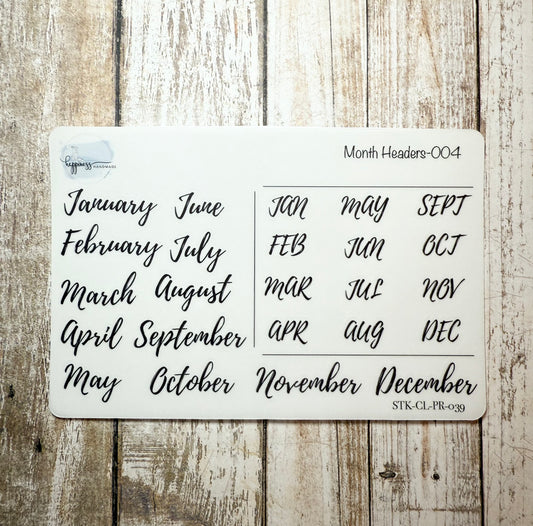 happiness
HANDMADE
Month Headers-004
January June
February July
March August
April September
May October November December
JAN MAY SEPT
FEB JUN OCT
MAR JUL NOV
APR AUG DEC
STK-CL-PR-039